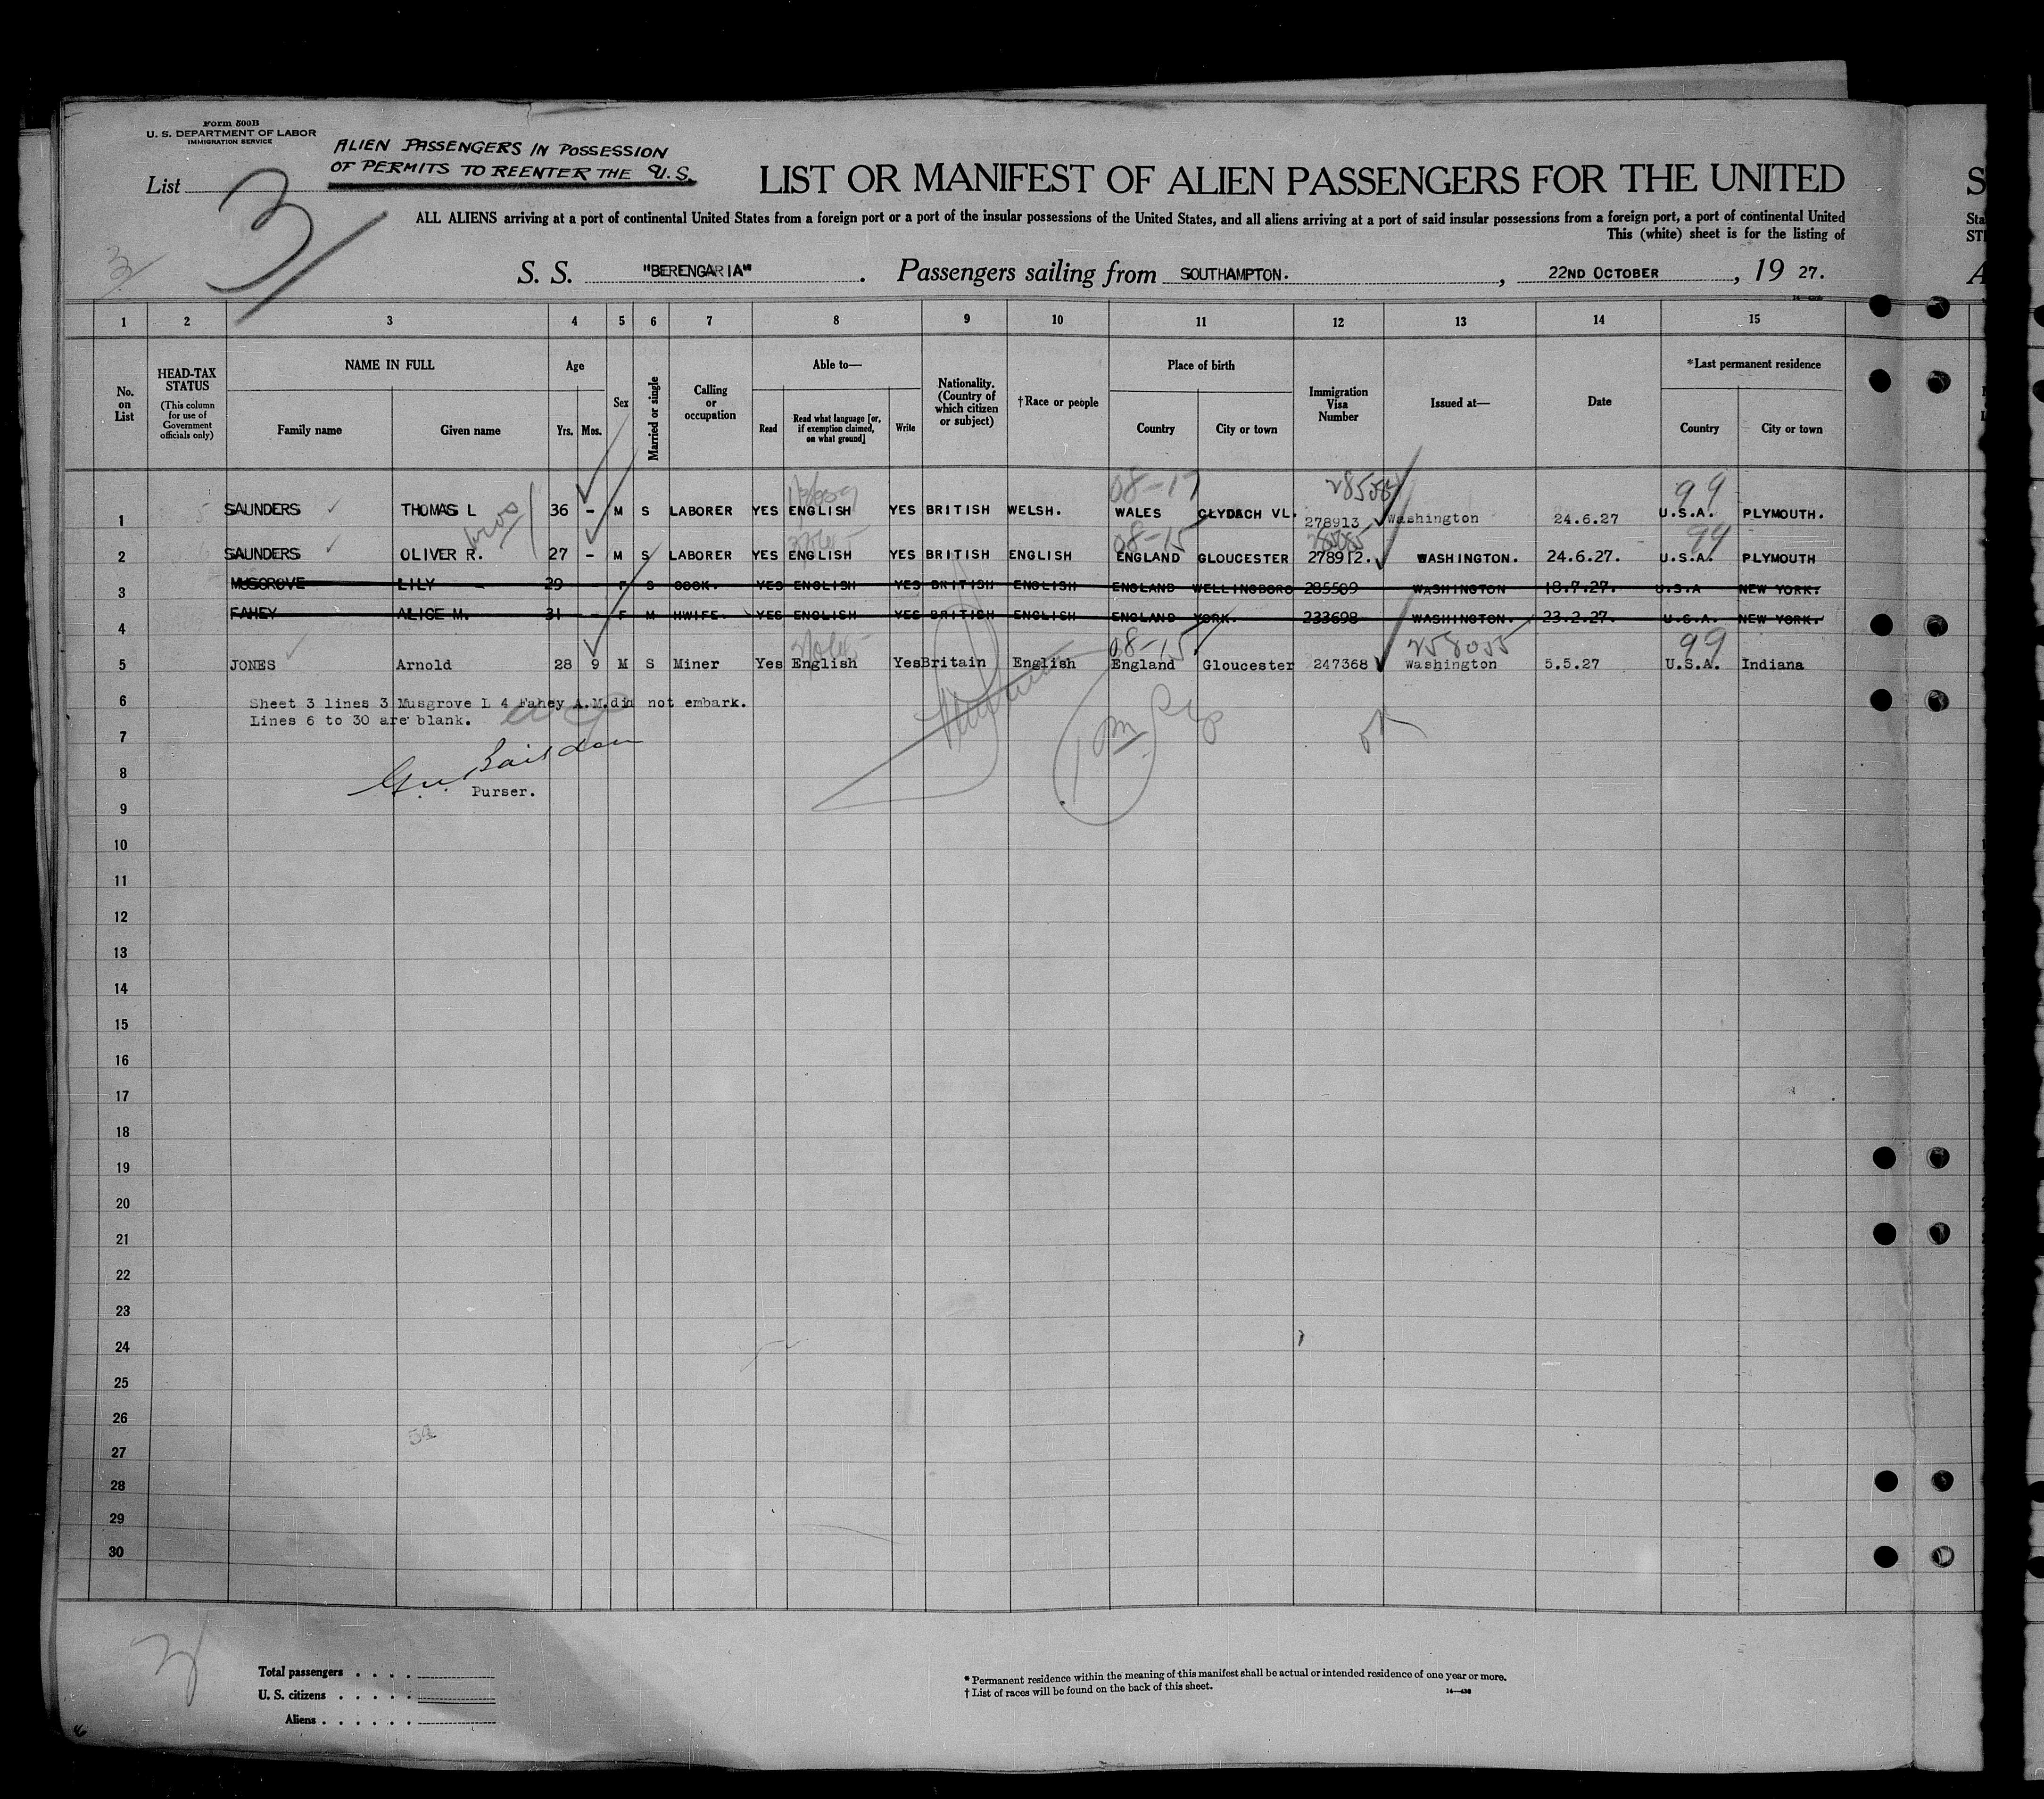 Form 500B
U. S. DEPARTMENT OF LABOR
IMMIGRATION SERVICE
ALIEN PASSENGERS IN POSSESSION
OF PERMITS TO REENTER THE U.S.
List 3
3
LIST OR MANIFEST OF ALIEN PASSENGERS FOR THE UNITED
S
ALL ALIENS arriving at a port of continental United States from a foreign port or a port of the insular possessions of the United States, and all aliens arriving at a port of said insular possessions from a foreign port, a port of continental United
Sta
This (white) sheet is for the listing of
STE
S. S. "BERENGARIA". Passengers sailing from SOUTHAMPTON. , 22ND OCTOBER , 19 27.
A
1 2 3 4 5 6 7 8 9 10 11 12 13 14 15
No. on List
HEAD-TAX STATUS
(This column for use of Government officials only)
NAME IN FULL
Family name Given name
Age
Yrs. Mos.
Sex
Married or single
Calling or occupation
Able to—
Read
Read what language [or, if exemption claimed, on what ground]
Write
Nationality. (Country of which citizen or subject)
†Race or people
Place of birth
Country City or town
Immigration Visa Number
Issued at—
Date
*Last permanent residence
Country City or town
08-17 99
1 SAUNDERS THOMAS L 36 - M S LABORER YES ENGLISH YES BRITISH WELSH. WALES CLYDACH VL. 278913 Washington 24.6.27 U.S.A. PLYMOUTH.
08-15 99
2 SAUNDERS OLIVER R. 27 - M S LABORER YES ENGLISH YES BRITISH ENGLISH ENGLAND GLOUCESTER 278912. WASHINGTON. 24.6.27. U.S.A. PLYMOUTH
3 MUSGROVE LILY 29 - F S COOK. YES ENGLISH YES BRITISH ENGLISH ENGLAND WELLINGBORO 285509 WASHINGTON 18.7.27. U.S.A NEW YORK.
4 FAHEY ALICE M. 31 - F M HWIFE. YES ENGLISH YES BRITISH ENGLISH ENGLAND YORK. 233698 WASHINGTON. 23.2.27. U.S.A. NEW YORK.
08-15 258055 99
5 JONES Arnold 28 9 M S Miner Yes English Yes Britain English England Gloucester 247368 Washington 5.5.27 U.S.A. Indiana
6 Sheet 3 lines 3 Musgrove L 4 Fahey A.M. did not embark.
Lines 6 to 30 are blank.
7
8
Purser.
9
10
11
12
13
14
15
16
17
18
19
20
21
22
23
24
25
26
27
28
29
30
Total passengers . . . .
U. S. citizens . . . . .
Aliens . . . . . .
* Permanent residence within the meaning of this manifest shall be actual or intended residence of one year or more.
† List of races will be found on the back of this sheet.
14—436